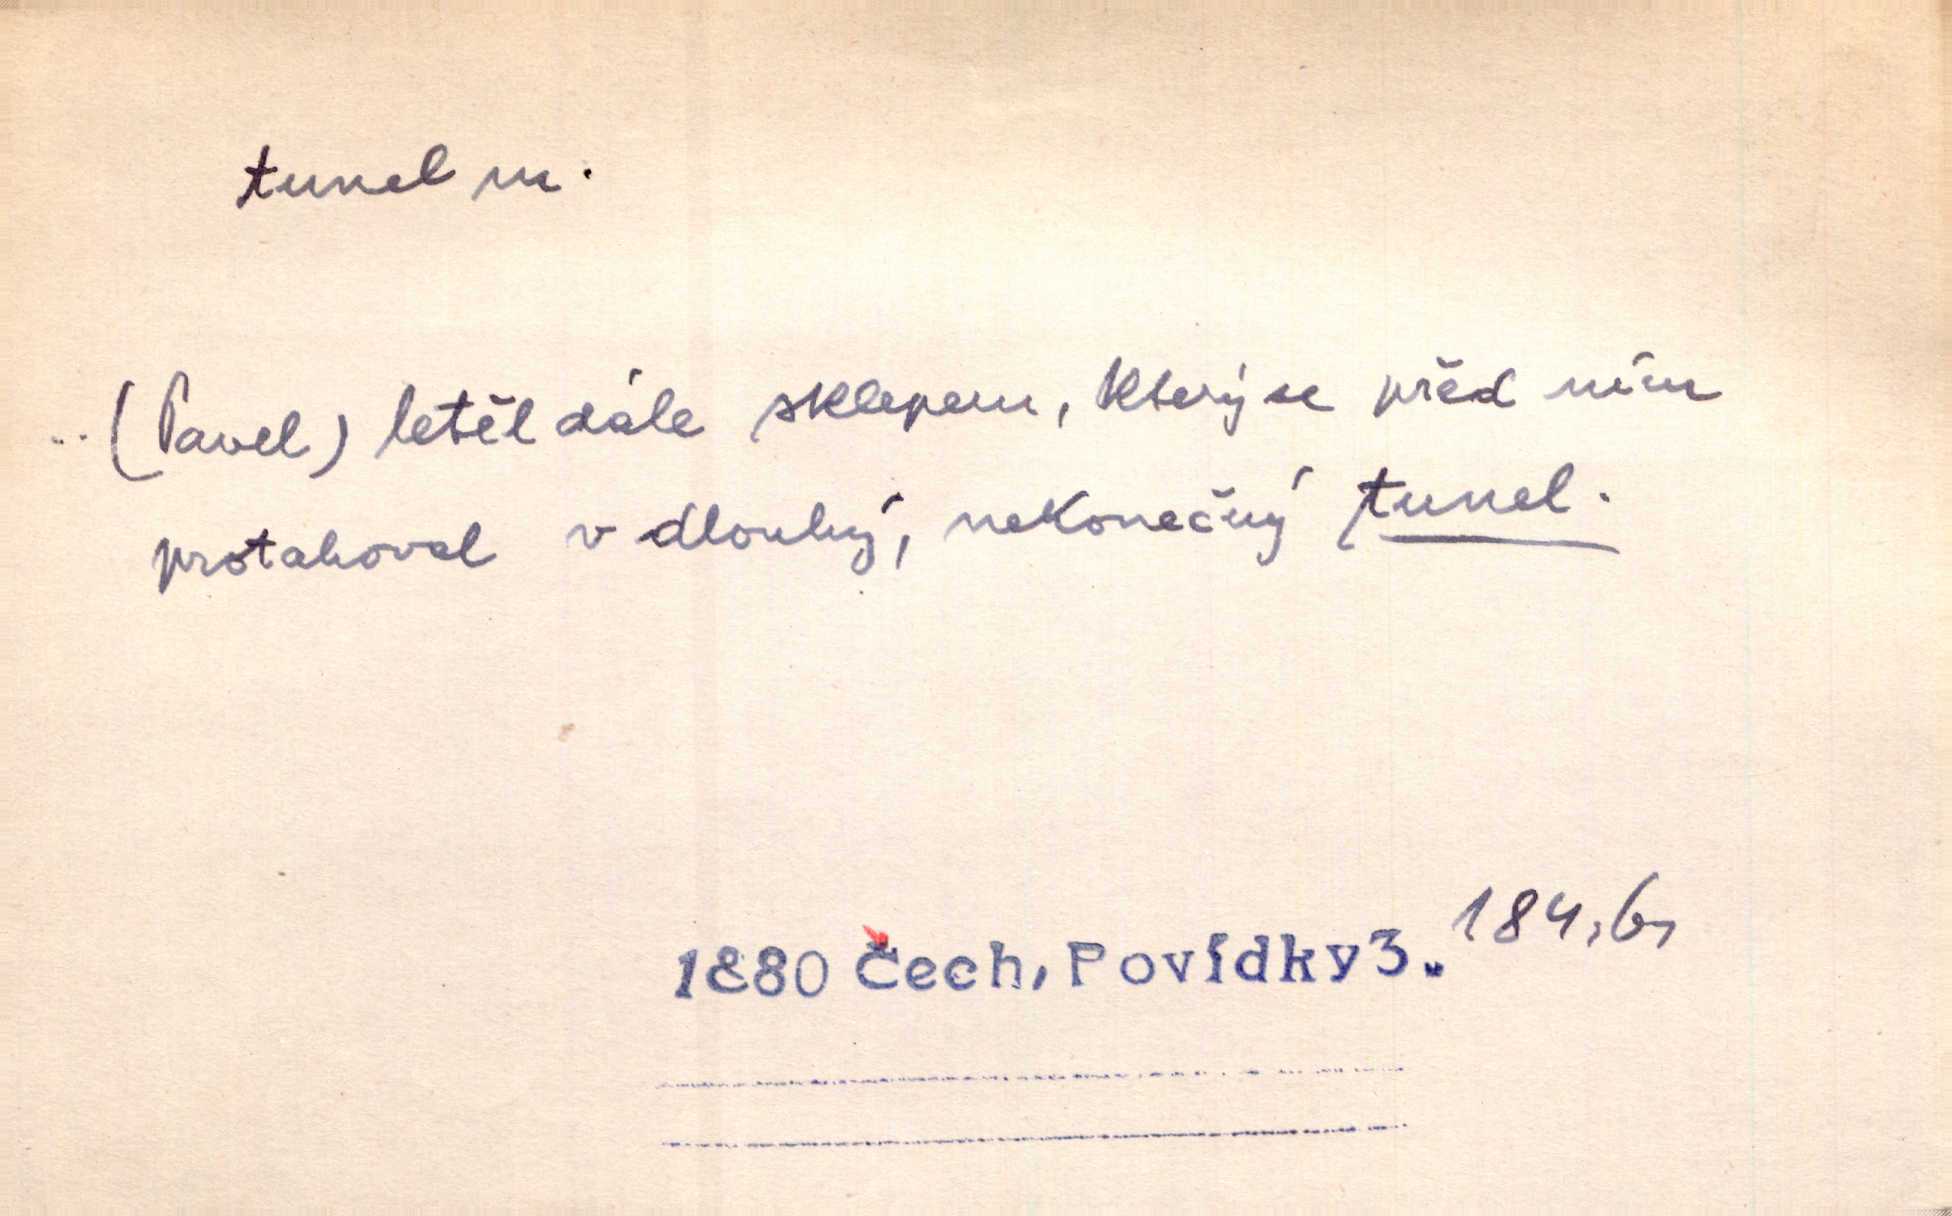 tunel m.
.. (Pavel) letěl dále sklepem, který se před ním
protahoval v dlouhý, nekonečný tunel.
184,6,
1880 Čech, Povídky 3.